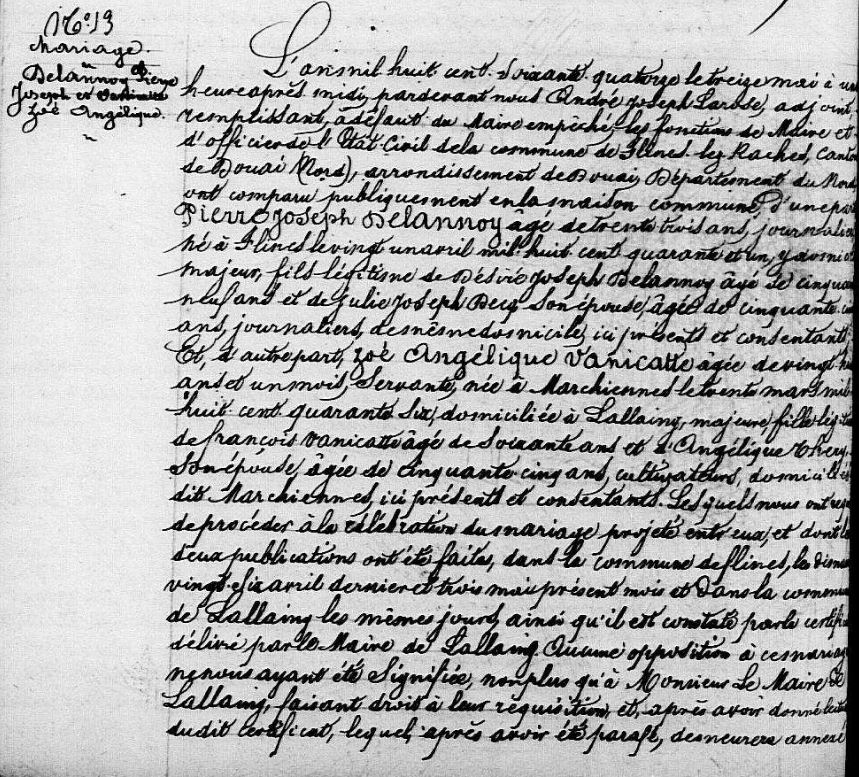 N° 13
Mariage
Delannoy Pierre
Joseph et Vanicatte
Zoé Angélique.
L'an mil huit cent soixante quatorze le treize mai à un
heure après midi, pardevant nous André Joseph Larose, adjoint,
remplissant, à défaut du Maire empêché, les fonctions de Maire et
d'officier de l'Etat Civil de la commune de Flines-lez-Raches, canton
de Douai (Nord), arrondissement de Douai, Département du Nord,
ont comparu publiquement en la maison commune, d'une part
Pierre Joseph Delannoy âgé de trente trois ans, journalier
né à Flines le vingt un avril mil huit cent quarante et un, y domici
majeur, fils légitime de Désiré Joseph Delannoy âgé de cinquan
neuf ans et de Julie Joseph Becq son épouse, âgée de cinquante ci
ans, journaliers, de même domicile, ici présents et consentants,
Et, d'autre part, Zoé Angélique Vanicatte âgée de vingt hu
ans et un mois, Servante, née à Marchiennes le trente mars mil
huit cent quarante six, domiciliée à Lallaing, majeure, fille légiti
de françois Vanicatte âgé de soixante ans et d'Angélique Thery
son épouse, âgée de cinquante cinq ans, cultivateurs, domiciliés
dit Marchiennes, ici présents et consentants. Lesquels nous ont requ
de procéder à la célébration du mariage projeté entre eux, et dont les
deux publications ont été faites, dans la commune de flines, les diman
vingt-six avril dernier et trois mai présent mois et dans la commune
de Lallaing les mêmes jours, ainsi qu'il est constaté par le certific
délivré par le Maire de Lallaing. Aucune opposition à ce mariage
ne nous ayant été signifiée, non plus qu'à Monsieur Le Maire de
Lallaing, faisant droit à leur réquisition, et, après avoir donné lectu
dudit certificat, lequel, après avoir été parafé, demeurera annexé